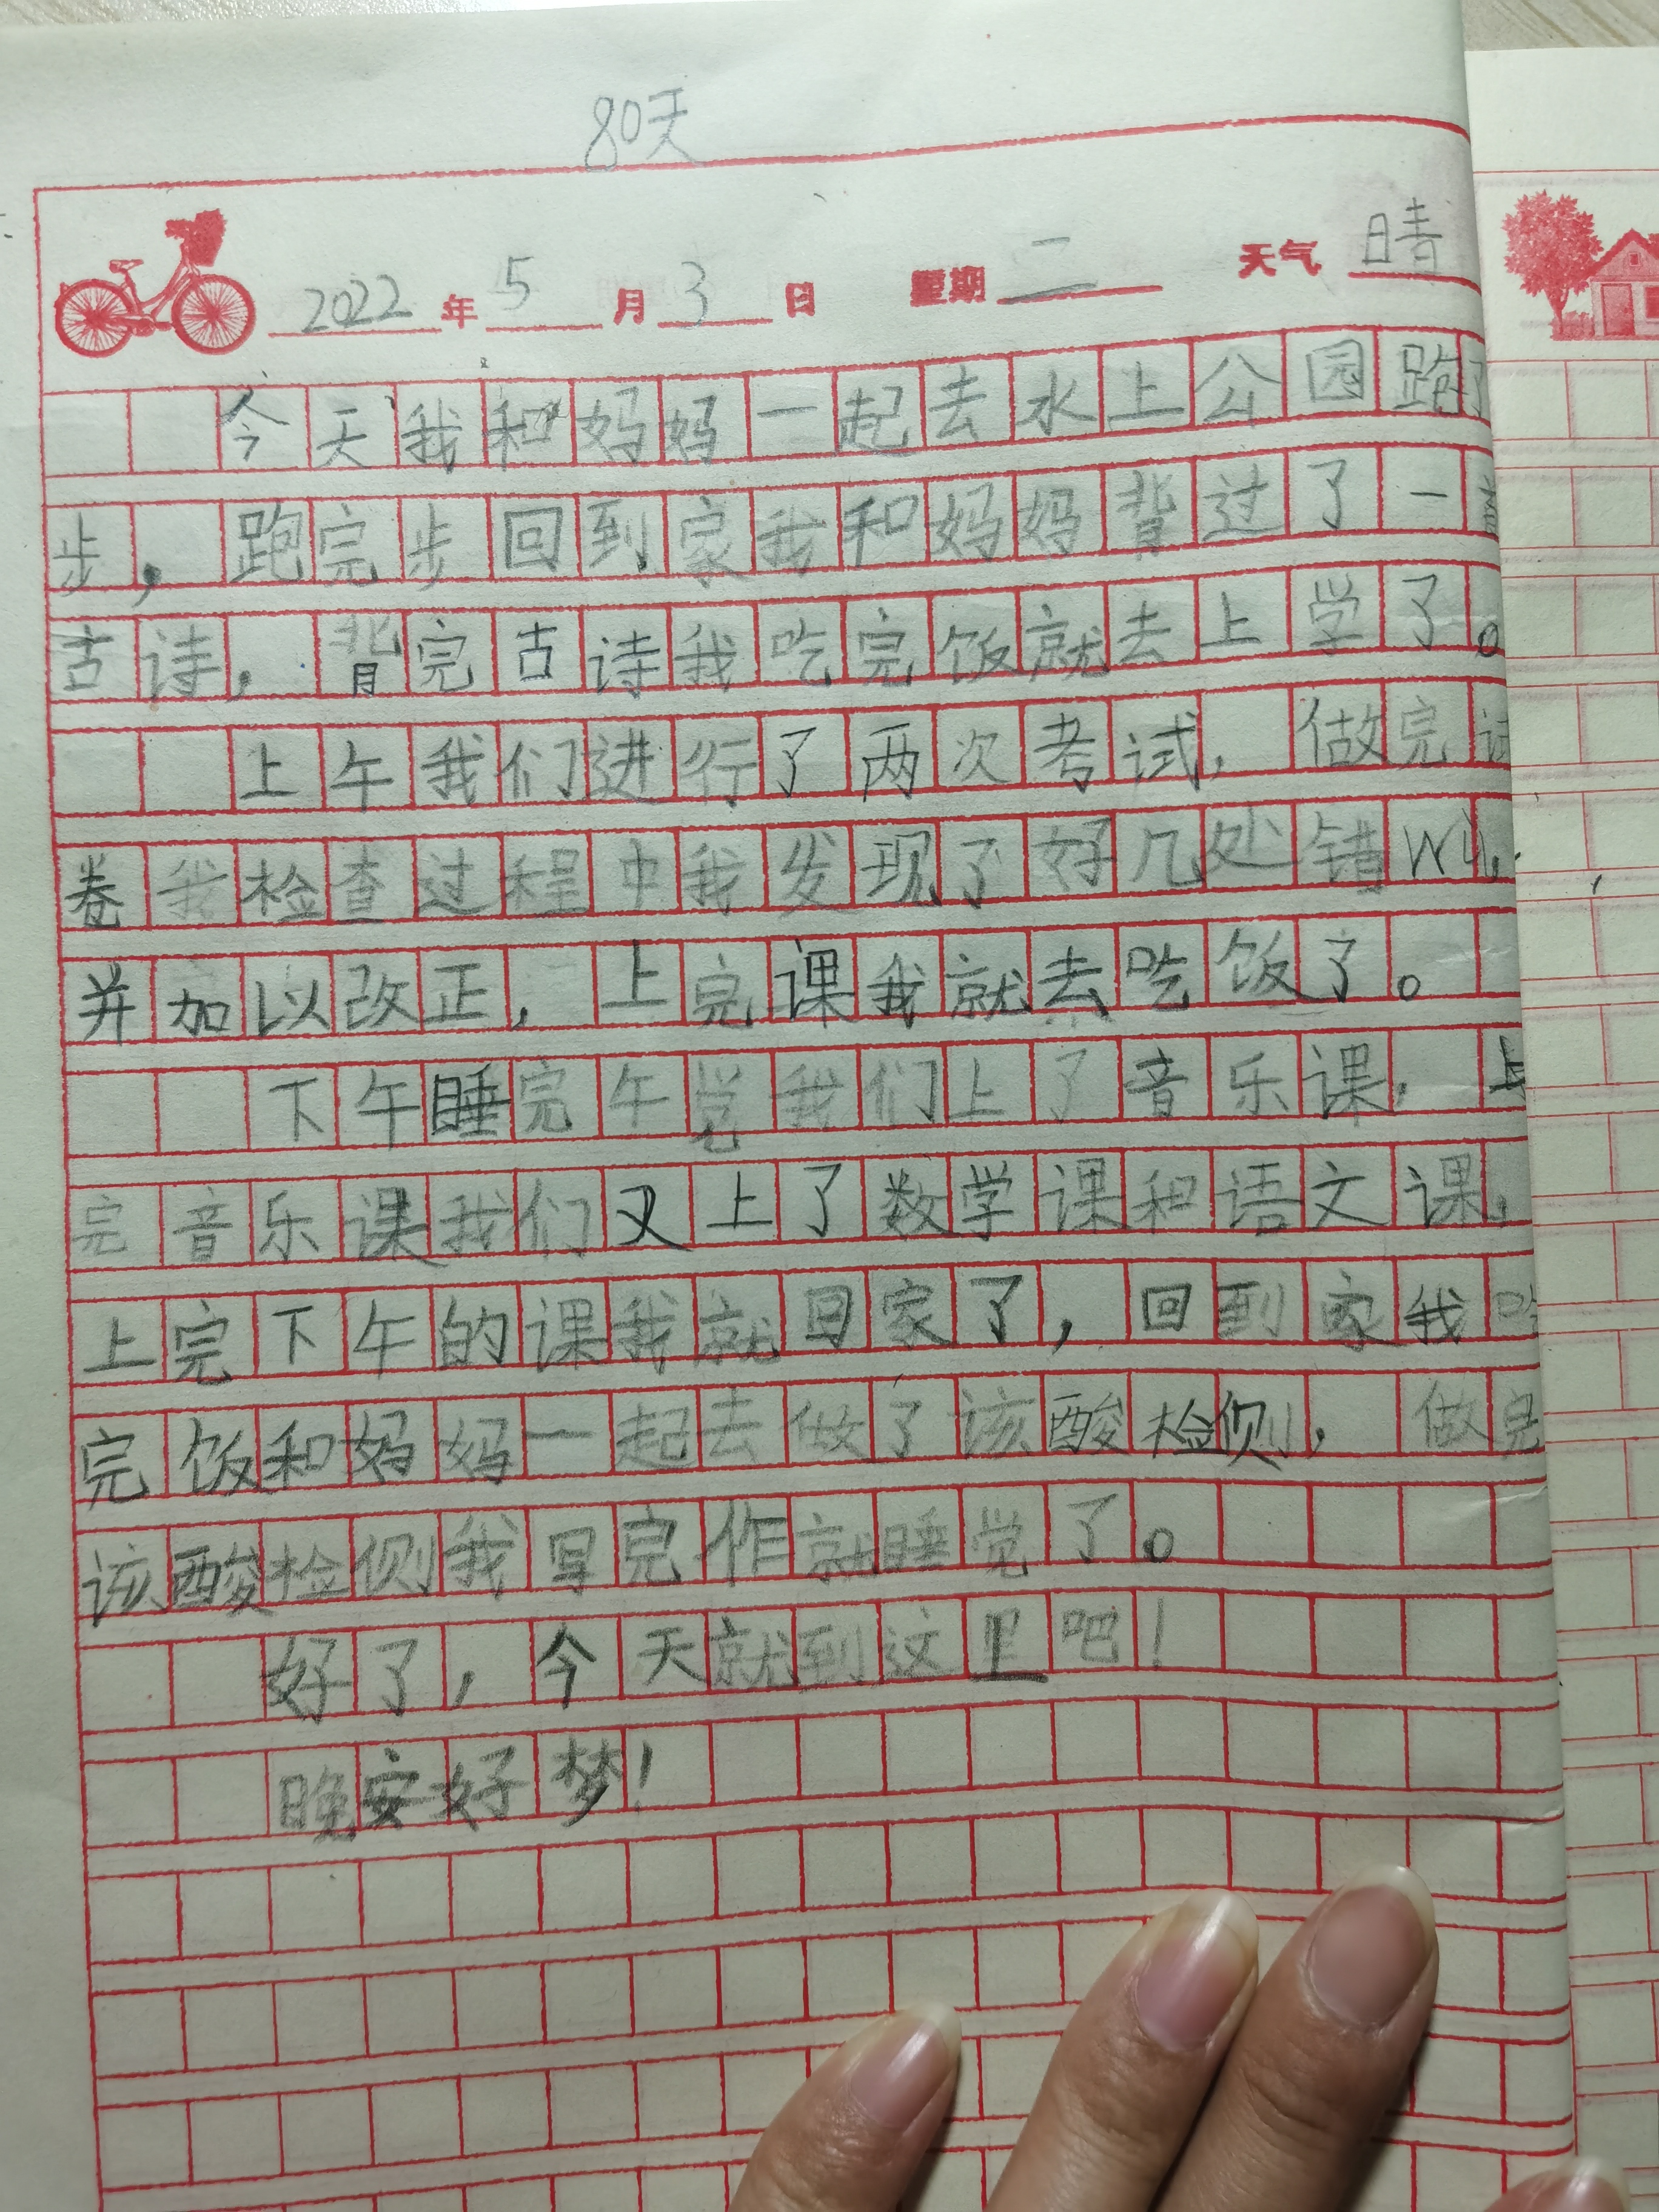 80天
2022年5月3日 星期二 天气晴
今天我和妈妈一起去水上公园跑了
步，跑完步回到家我和妈妈背过了一
古诗，背完古诗我吃完饭就去上学了。
上午我们进行了两次考试，做完试
卷我检查过程中我发现了好几处错wù，
并加以改正，上完课我就去吃饭了。
下午睡完午觉我们上了音乐课，上
完音乐课我们又上了数学课和语文课，
上完下午的课我就回家了，回到家我吃
完饭和妈妈一起去做了该酸检侧，做完
该酸检侧我写完作就睡觉了。
好了，今天就到这里吧！
晚安好梦！